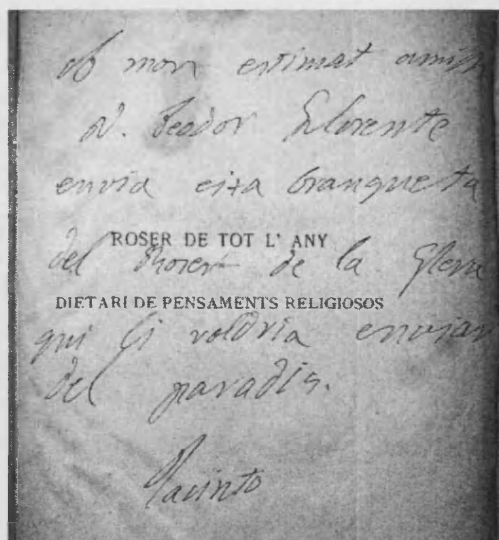 A mon estimat amich
D. Teodor Llorente
envia eixa branqueta
ROSER DE TOT L' ANY
del Roser de la Gleva
DIETARI DE PENSAMENTS RELIGIOSOS
qui li voldria enviar
del paradís.
Jacinto